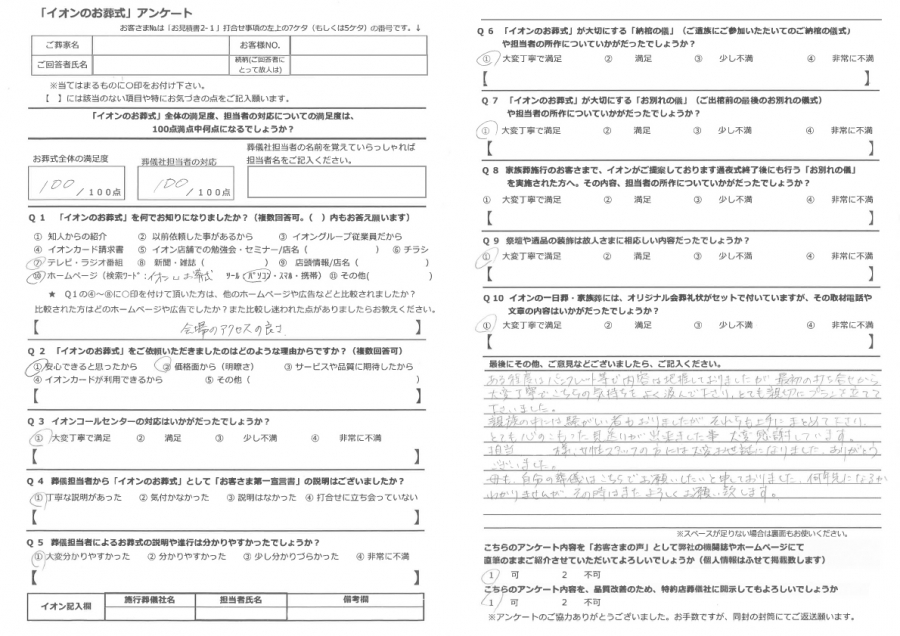 「イオンのお葬式」アンケート
お客さま№は「お見積書2-1」打合せ事項の左上の7ケタ（もしくは5ケタ）の番号です。↓
ご葬家名 お客様NO.
ご回答者氏名 続柄(ご回答者にとって故人は)
※当てはまるものに○印をお付け下さい。
【 】には該当のない項目や特にお気づきの点をご記入願います。
「イオンのお葬式」全体の満足度、担当者の対応についての満足度は、
100点満点中何点になるでしょうか？
お葬式全体の満足度 葬儀社担当者の対応 葬儀社担当者の名前を覚えていらっしゃれば
担当者名をご記入ください。
100 /100点 100 /100点
Q1 「イオンのお葬式」を何でお知りになりましたか？（複数回答可。（ ）内もお答え願います）
① 知人からの紹介 ② 以前依頼した事があるから ③ イオングループ従業員だから
④ イオンカード請求書 ⑤ イオン店舗での勉強会・セミナー/店名（ ） ⑥ チラシ
⑦ テレビ・ラジオ番組 ⑧ 新聞・雑誌（ ） ⑨ 店頭情報/店名（ ）
⑩ ホームページ（検索ﾜｰﾄﾞ：イオン お葬式 ﾂｰﾙ（ パソコン・ｽﾏﾎ・携帯） ⑪ その他( )
★ Q1の④～⑧に○印を付けて頂いた方は、他のホームページや広告などと比較されましたか？
比較された方はどのホームページや広告でしたか？また比較し迷われた点がありましたらお教えください。
【 会場のアクセスの良さ 】
Q2 「イオンのお葬式」をご依頼いただきましたのはどのような理由からですか？（複数回答可）
① 安心できると思ったから ② 価格面から（明瞭さ） ③ サービスや品質に期待したから
④ イオンカードが利用できるから ⑤ その他（ ）
【 】
Q3 イオンコールセンターの対応はいかがだったでしょうか？
① 大変丁寧で満足 ② 満足 ③ 少し不満 ④ 非常に不満
【 】
Q4 葬儀担当者から「イオンのお葬式」として「お客さま第一宣言書」の説明はございましたか？
① 丁寧な説明があった ② 気がかなかった ③ 説明はなかった ④ 打合せに立ち会っていない
【 】
Q5 葬儀担当者によるお葬式の説明や進行は分かりやすかったでしょうか？
① 大変分かりやすかった ② 分かりやすかった ③ 少し分かりづらかった ④ 非常に不満
【 】
イオン記入欄 施行葬儀社名 担当者氏名 備考欄
Q6 「イオンのお葬式」が大切にする「納棺の儀」（ご遺族にご参加いたたいてのご納棺の儀式）
や担当者の所作についていかがだったでしょうか？
① 大変丁寧で満足 ② 満足 ③ 少し不満 ④ 非常に不満
【 】
Q7 「イオンのお葬式」が大切にする「お別れの儀」（ご出棺前の最後のお別れの儀式）
や担当者の所作についていかがだったでしょうか？
① 大変丁寧で満足 ② 満足 ③ 少し不満 ④ 非常に不満
【 】
Q8 家族葬施行のお客さまで、イオンがご提案しております通夜式終了後にも行う「お別れの儀」
を実施された方へ。その内容、担当者の所作についていかがだったでしょうか？
① 大変丁寧で満足 ② 満足 ③ 少し不満 ④ 非常に不満
【 】
Q9 祭壇や遺品の装飾は故人さまに相応しい内容だったでしょうか？
① 大変丁寧で満足 ② 満足 ③ 少し不満 ④ 非常に不満
【 】
Q10 イオンの一日葬・家族葬には、オリジナル会葬礼状がセットで付いていますが、その取材電話や
文章の内容はいかがだったでしょうか？
① 大変丁寧で満足 ② 満足 ③ 少し不満 ④ 非常に不満
【 】
最後にその他、ご意見などございましたら、ご記入ください。
ある程度はパンフレット等で内容は把握しておりましたが 最初の打ち合せから
大変丁寧でこちらの気持ちをよく汲んで下さり、とても親切にプランを立てて
下さいました。
親族の中には騒がしい者もおりましたが それらも上手にまとめて下さり、
とても心のこもった見送りが出来ました事 大変感謝しています。
担当 様、女性スタッフの方には大変お世話になりました。ありがとう
ございました。
母も、自分の葬儀はこちらでお願いしたいと申しておりました。何年先になるか
わかりませんが、その時はまた よろしくお願い致します。
※スペースが足りない場合は裏面もお使いください。
こちらのアンケート内容を「お客さまの声」として弊社の機関誌やホームページにて
直筆のままご紹介させていただいてよろしいでしょうか（個人情報はふせて掲載致します）
1 可 2 不可
こちらのアンケート内容を、品質改善のため、特約店葬儀社に開示してもよろしいでしょうか
1 可 2 不可
※アンケートのご協力ありがとうございました。お手数ですが、同封の封筒にてご返送願います。